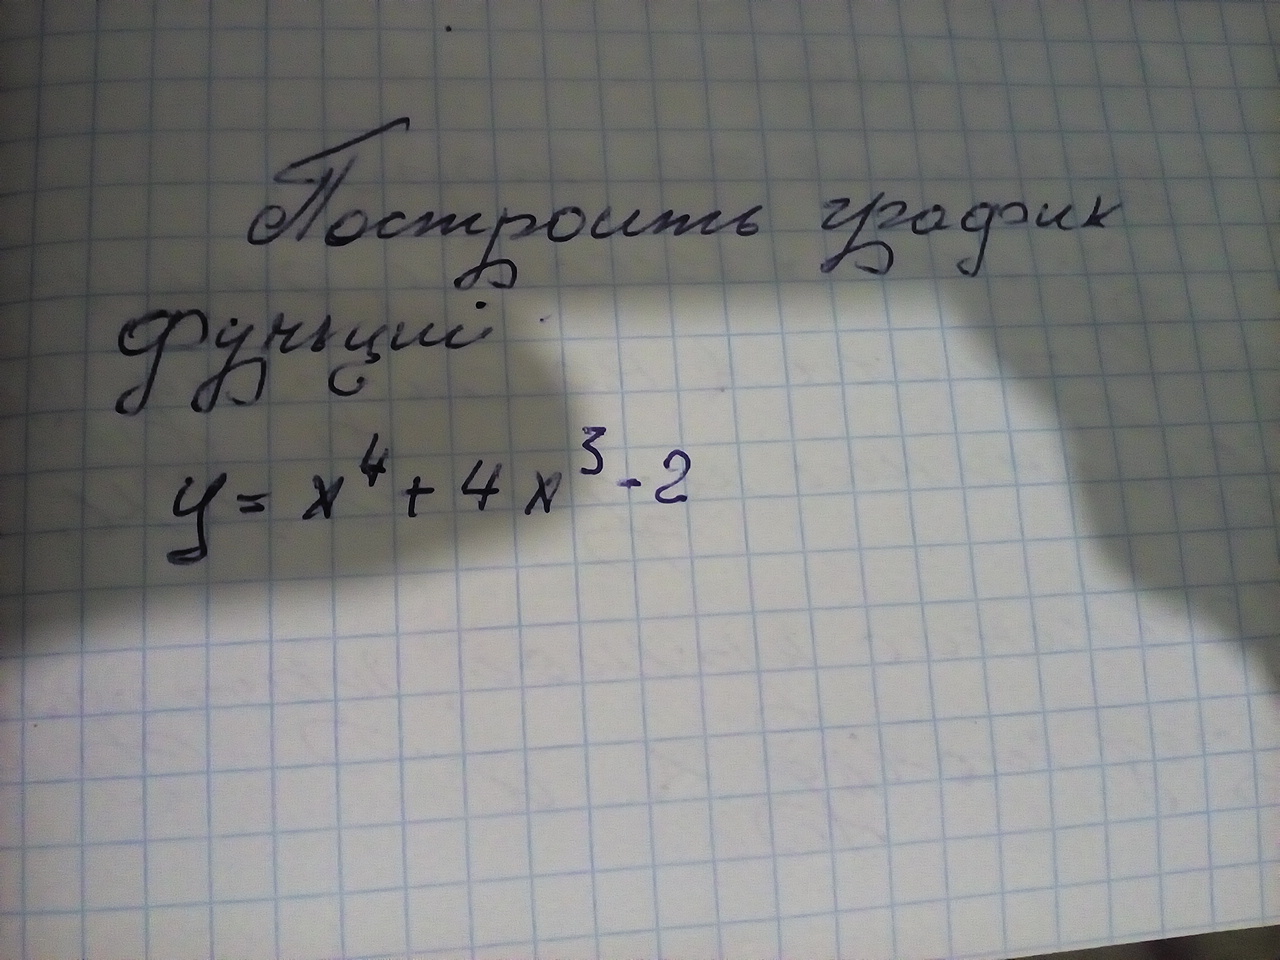 Построить график
функций
y = x⁴ + 4x³ - 2